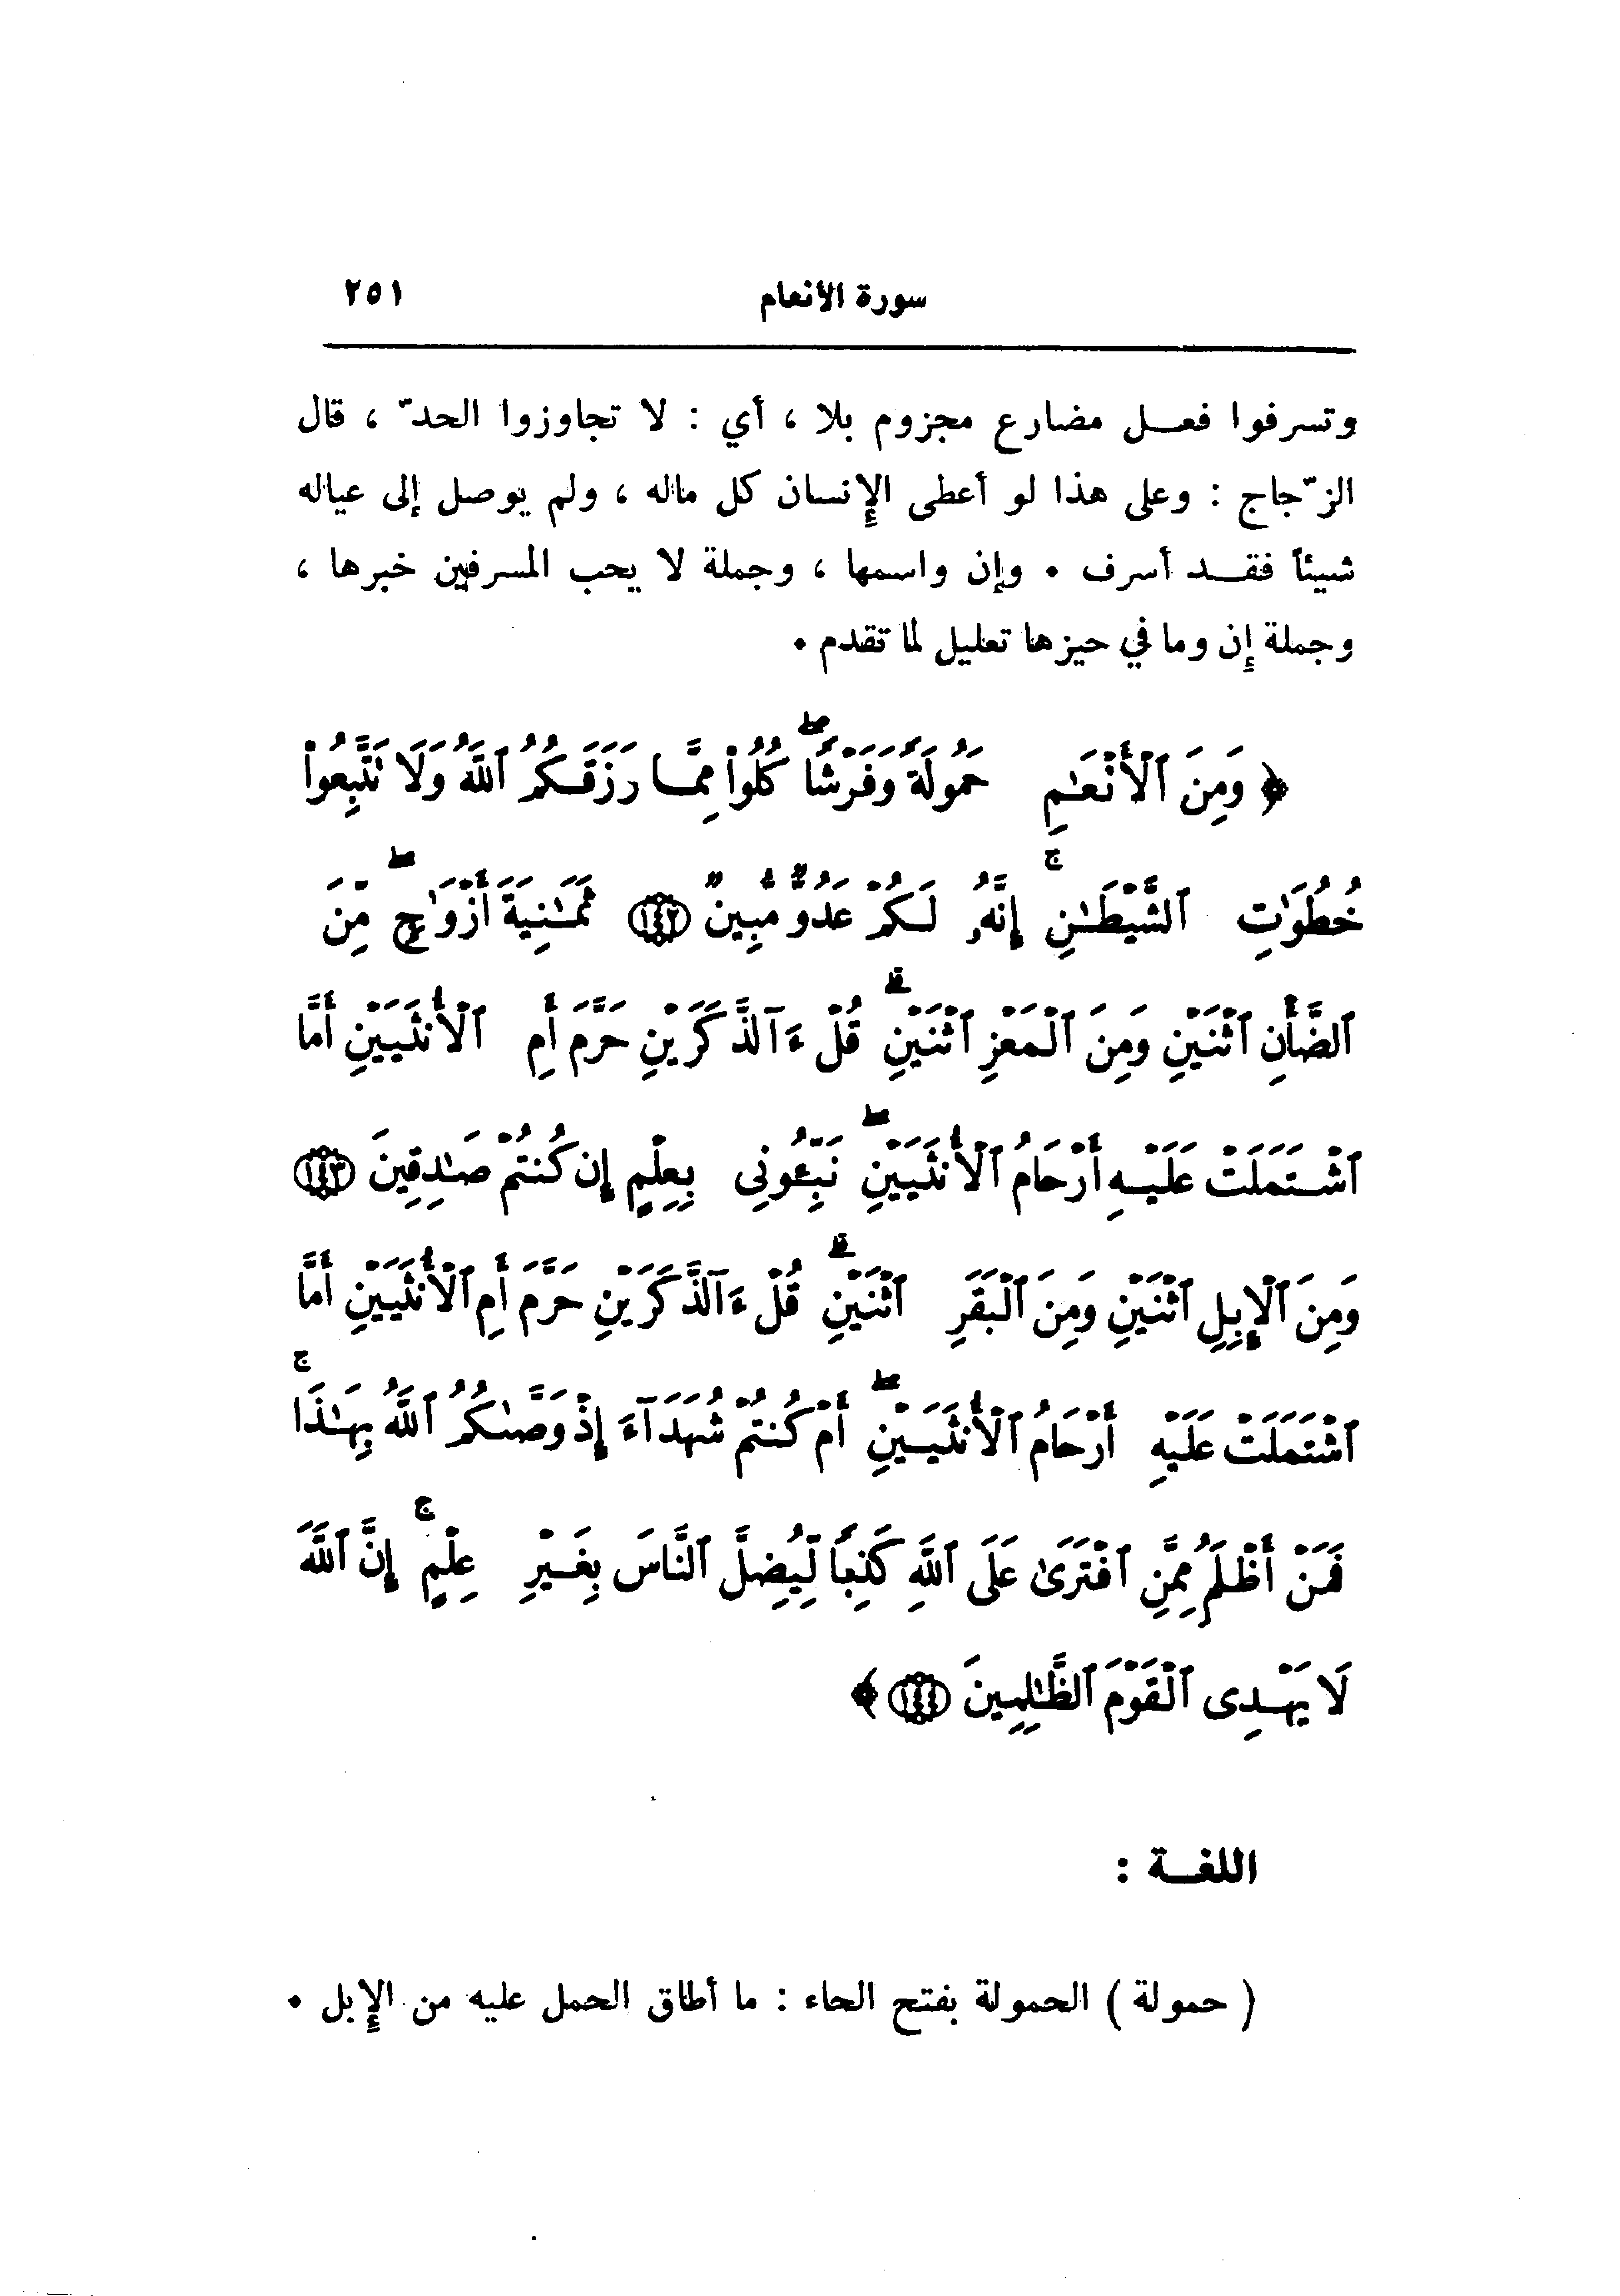 سورة الأنعام ٢٥١
وتسرفوا فعـل مضارع مجزوم بلا ، أي : لا تجاوزوا الحدّ ، قال
الزّجاج : وعلى هذا لو أعطى الإنسان كل ماله ، ولم يوصل إلى عياله
شيئاً فقـد أسرف . وإن واسمها ، وجملة لا يحب المسرفين خبرها ،
وجملة إن وما في حيزها تعليل لما تقدم .
﴿ وَمِنَ ٱلْأَنْعَٰمِ حَمُولَةً وَفَرْشًا ۖ كُلُوا۟ مِمَّا رَزَقَكُمُ ٱللَّهُ وَلَا تَتَّبِعُوا۟
خُطُوَٰتِ ٱلشَّيْطَٰنِ ۚ إِنَّهُۥ لَكُمْ عَدُوٌّ مُّبِينٌ ﴿١٤٢﴾ ثَمَٰنِيَةَ أَزْوَٰجٍ ۖ مِّنَ
ٱلضَّأْنِ ٱثْنَيْنِ وَمِنَ ٱلْمَعْزِ ٱثْنَيْنِ ۗ قُلْ ءَآلذَّكَرَيْنِ حَرَّمَ أَمِ ٱلْأُنثَيَيْنِ أَمَّا
ٱشْتَمَلَتْ عَلَيْهِ أَرْحَامُ ٱلْأُنثَيَيْنِ ۖ نَبِّـُٔونِى بِعِلْمٍ إِن كُنتُمْ صَٰدِقِينَ ﴿١٤٣﴾
وَمِنَ ٱلْإِبِلِ ٱثْنَيْنِ وَمِنَ ٱلْبَقَرِ ٱثْنَيْنِ ۗ قُلْ ءَآلذَّكَرَيْنِ حَرَّمَ أَمِ ٱلْأُنثَيَيْنِ أَمَّا
ٱشْتَمَلَتْ عَلَيْهِ أَرْحَامُ ٱلْأُنثَيَيْنِ ۖ أَمْ كُنتُمْ شُهَدَآءَ إِذْ وَصَّىٰكُمُ ٱللَّهُ بِهَٰذَا ۚ
فَمَنْ أَظْلَمُ مِمَّنِ ٱفْتَرَىٰ عَلَى ٱللَّهِ كَذِبًا لِّيُضِلَّ ٱلنَّاسَ بِغَيْرِ عِلْمٍ ۚ إِنَّ ٱللَّهَ
لَا يَهْدِى ٱلْقَوْمَ ٱلظَّٰلِمِينَ ﴿١٤٤﴾ ﴾
اللغـة :
( حمولة ) الحمولة بفتح الحاء : ما أطاق الحمل عليه من الإبل .